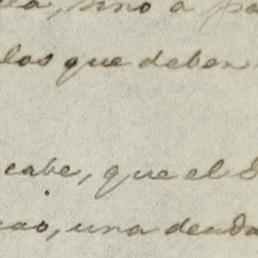 sino a pa
los que deben
cabe, que el
una deuda